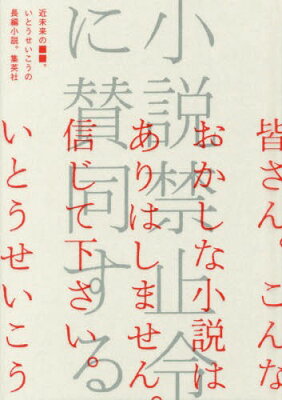 近未来の■■。
いとうせいこうの
長編小説。集英社
小説禁止令
に賛同する
皆さん。こんな
おかしな小説は
ありはしません。
信じて下さい。
いとうせいこう